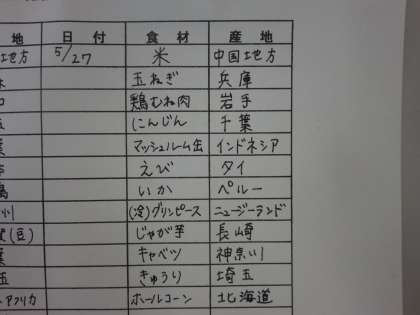 地 日付 食材 産地
地方 5/27 米 中国地方
玉ねぎ 兵庫
鶏むね肉 岩手
にんじん 千葉
マッシュルーム缶 インドネシア
えび タイ
いか ペルー
(冷)グリンピース ニュージーランド
(豆) じゃが芋 長崎
キャベツ 神奈川
玉 きゅうり 埼玉
アフリカ ホールコーン 北海道